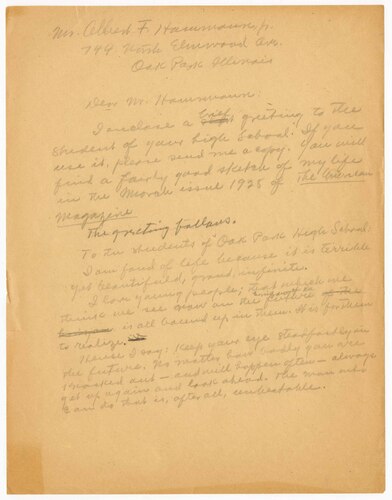 Mr. Albert F. Hammann, Jr.
744 North Elmwood Ave.
Oak Park Illinois
Dear Mr. Hammann:
I enclose a brief greeting to the
student of your high school. If you
use it, please send me a copy. You will
find a fairly good sketch of my life
in the March issue 1925 of The American
Magazine
The greeting follows.
To the students of Oak Park High School.
I am fond of life because it is terrible
yet beautiful, grand, infinite.
I love young people; that which we
think we see now on the future
is all bound up in them. It is for them
to realize.
Hence I say: Keep your eye steadfast upon
the future. No matter how badly you are
knocked out — and will happen often — always
get up again and look ahead. The man who
can do that is, after all, unbeatable.